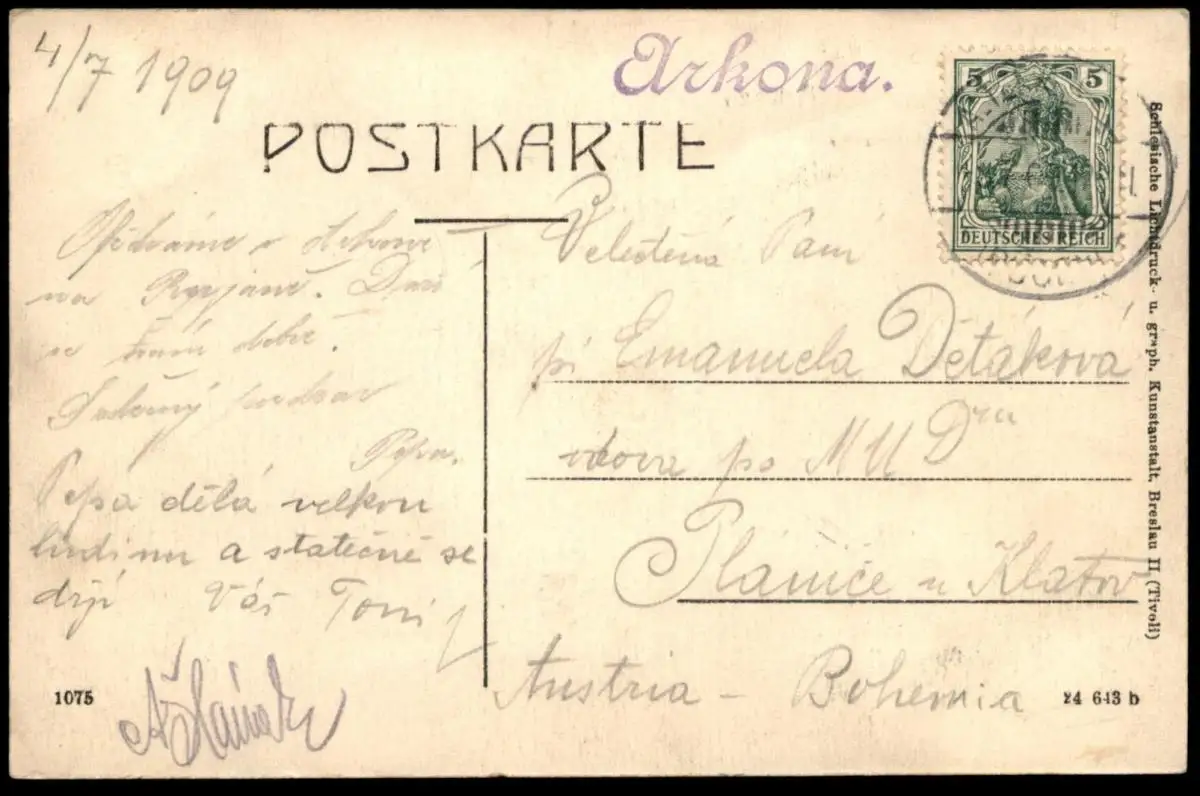 4/7 1909
Arkona.
POSTKARTE
5 5
DEUTSCHES REICH
na Rujaně. Daří
se dobře.
Srdečný pozdrav
Pepa.
Pepa dělá velkou
hrdinu a statečně se
drží Váš Toni
Veletěná Paní
pí Emanuela Deťáková
vdova po MUDru
Plánice u Klatov
Austria - Bohemia
1075
24 643 b
Schlesische Lichtdruck- u. graph. Kunstanstalt, Breslau II (Tivoli)